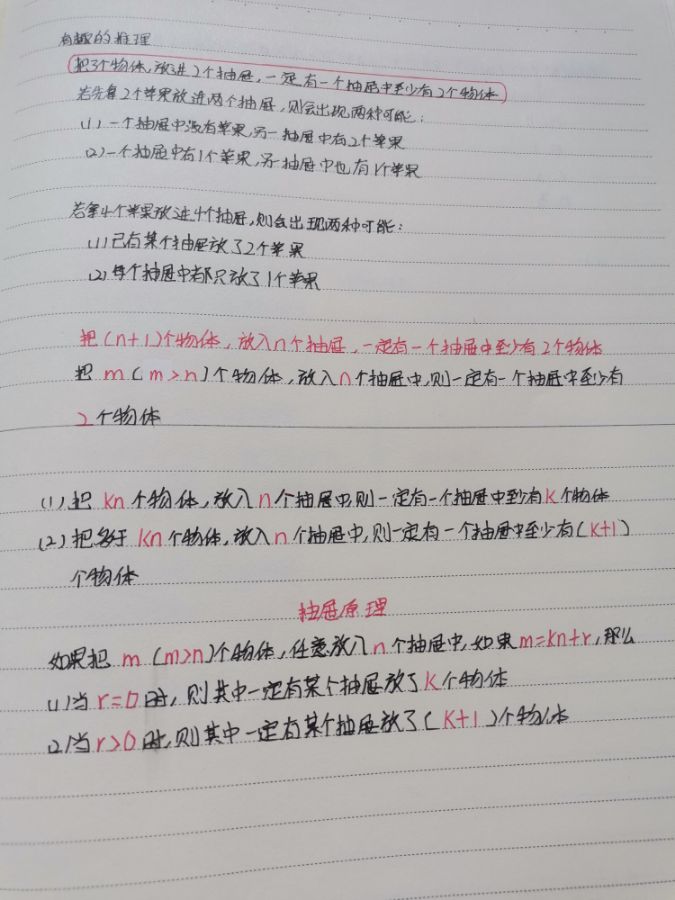 有趣的推理
把3个物体,放进2个抽屉,一定有一个抽屉中至少有2个物体
若先拿2个苹果放进两个抽屉,则会出现两种可能:
(1)一个抽屉中没有苹果,另一抽屉中有2个苹果
(2)一个抽屉中有1个苹果,另一抽屉中也有1个苹果
若拿4个苹果放进4个抽屉,则会出现两种可能:
(1)已有某个抽屉放了2个苹果
(2)每个抽屉中都只放了1个苹果
把(n+1)个物体,放入n个抽屉,一定有一个抽屉中至少有2个物体
把m(m>n)个物体,放入n个抽屉中,则一定有一个抽屉中至少有
2个物体
(1)把kn个物体,放入n个抽屉中,则一定有一个抽屉中至少有k个物体
(2)把多于kn个物体,放入n个抽屉中,则一定有一个抽屉中至少有(k+1)
个物体
抽屉原理
如果把m(m>n)个物体,任意放入n个抽屉中,如果m=kn+r,那么
(1)当r=0时,则其中一定有某个抽屉放了k个物体
(2)当r>0时,则其中一定有某个抽屉放了(k+1)个物体